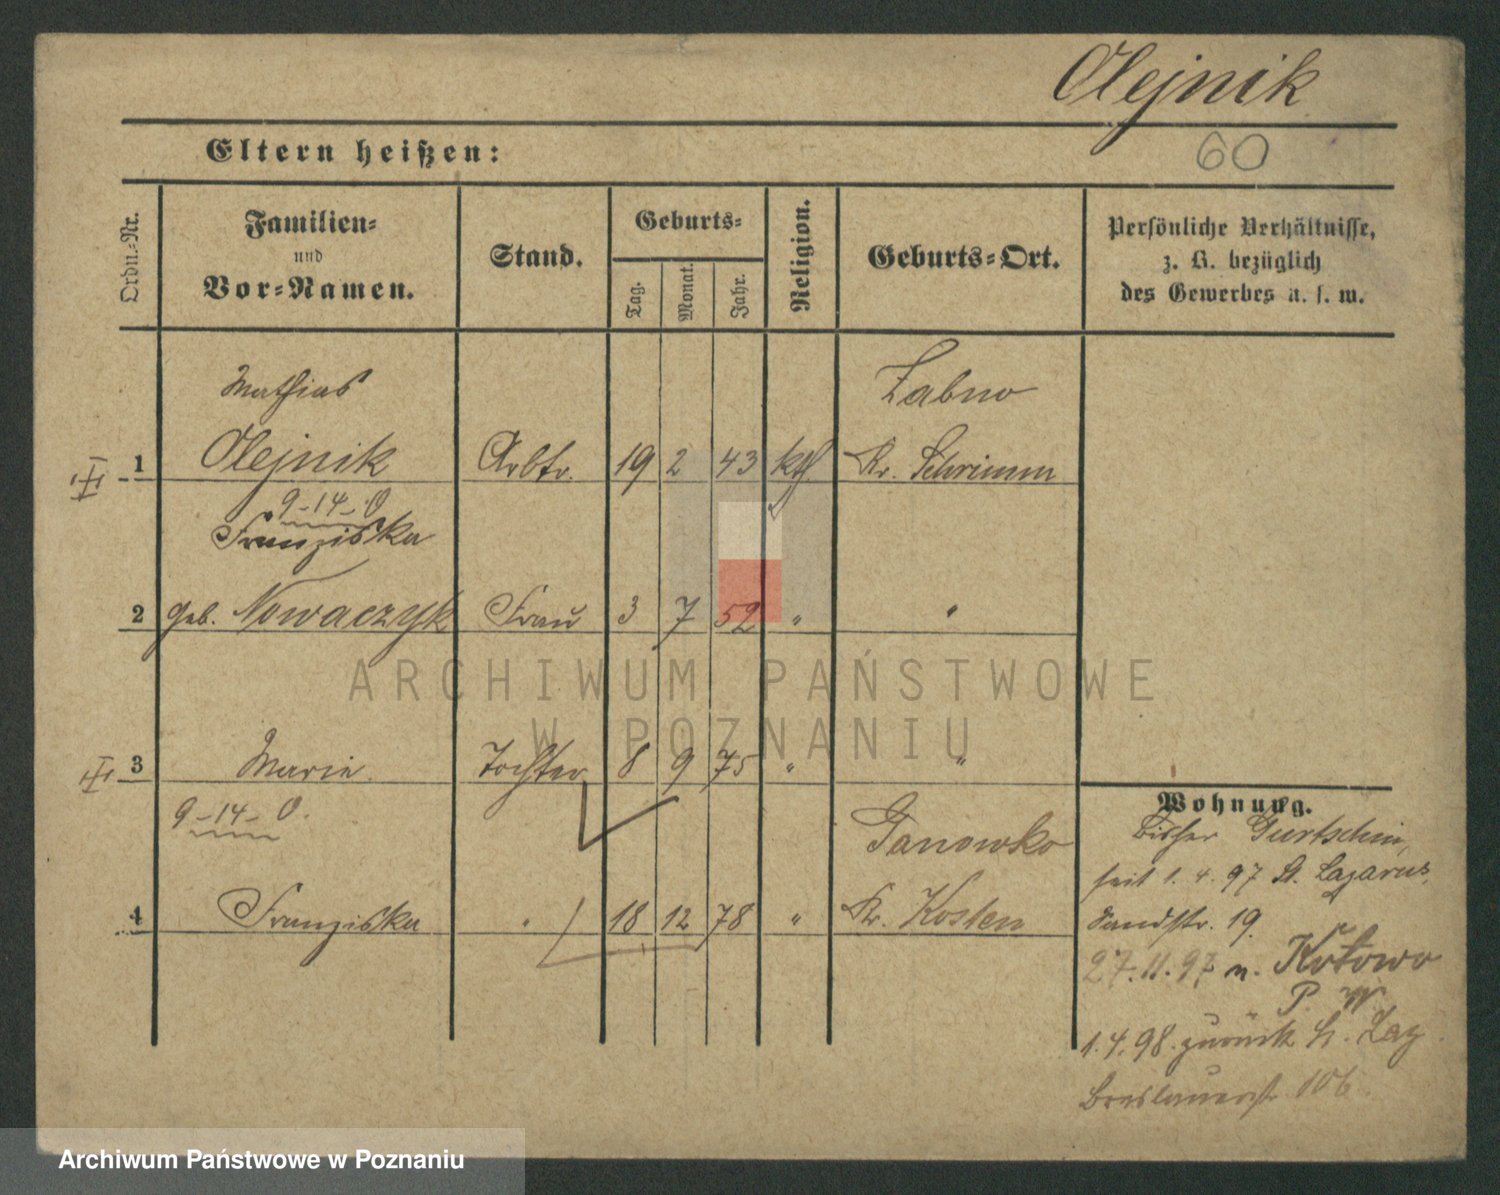 Olejnik
60
Eltern heißen:
Ordn.-Nr.
Familien-
und
Vor-Namen.
Stand.
Geburts-
Tag.
Monat.
Jahr.
Religion.
Geburts-Ort.
Persönliche Verhältnisse,
z. B. bezüglich
des Gewerbes u. s. w.
Mathias
Zabno
III 1 Olejnik Arbtr. 19 2 43 kth. Kr. Schrimm
9-14-0
Franziska
2 geb. Nowaczyk Frau 3 7 52 " "
III 3 Marie Tochter 8 9 75 " "
9-14-0.
Janowko
4 Franziska " 18 12 78 " Kr. Kosten
Wohnung.
Bisher Gurtschin,
seit 1. 4. 97 St. Lazarus,
Sandstr. 19.
27.11.97 n. Kotowo
P. W.
1.4.98. zurück St. Laz
Breslauerstr 106.
ARCHIWUM PAŃSTWOWE
W POZNANIU
Archiwum Państwowe w Poznaniu